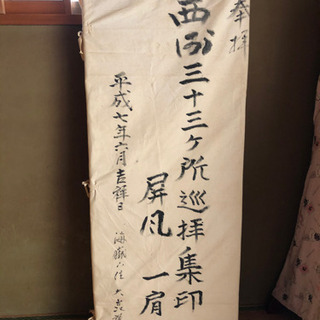 奉拝
西国三十三ヶ所巡拝集印
屏風 一肩
平成七年六月吉祥日